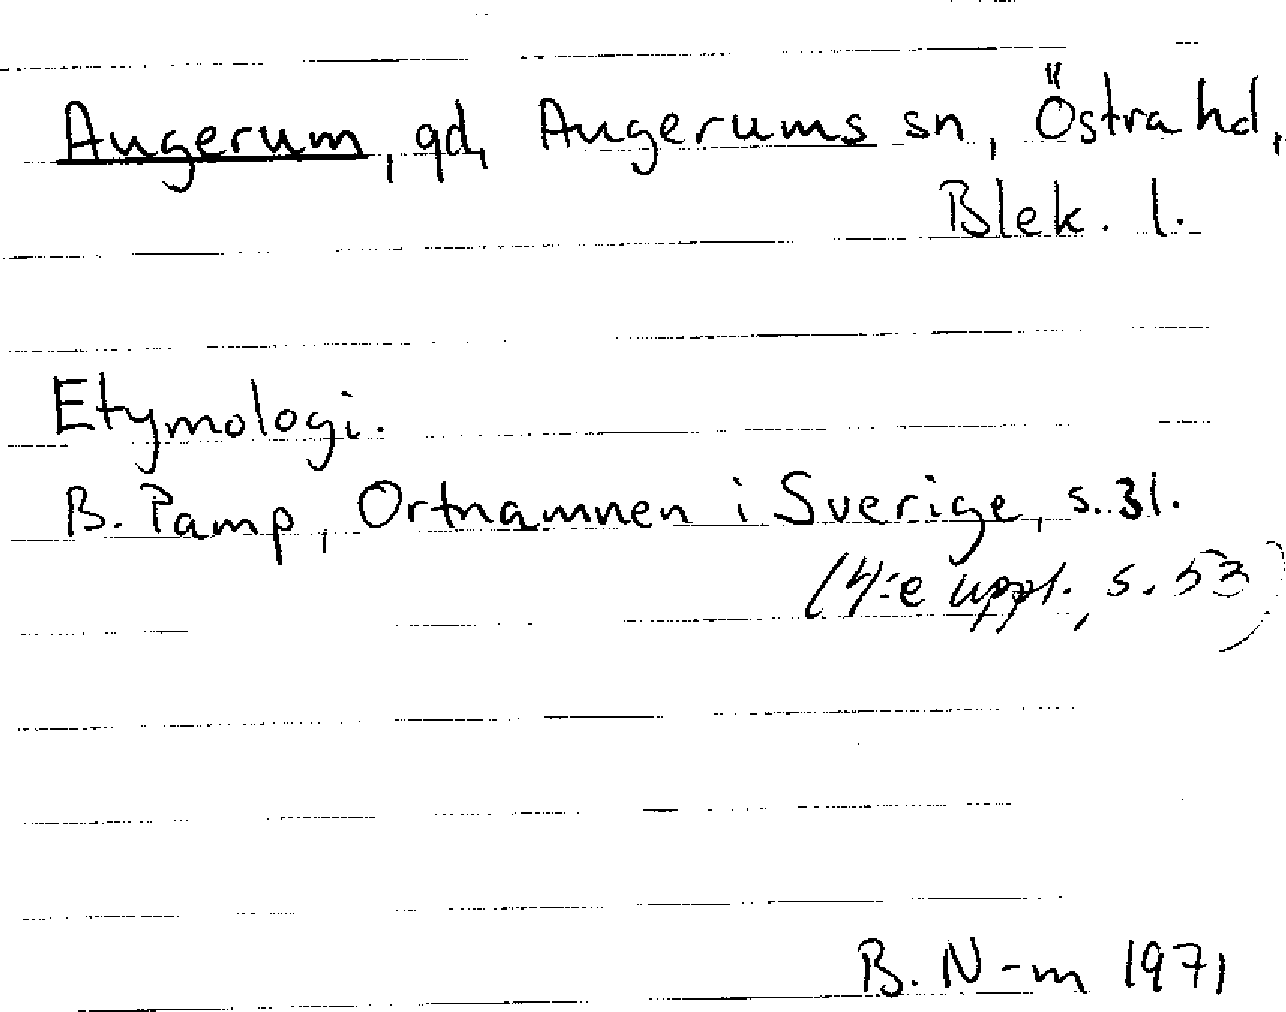 Augerum, gd, Augerums sn, Östra hd,
Blek. l.
Etymologi.
B. Pamp, Ortnamnen i Sverige, s. 31.
(4:e uppl., s. 53)
B. N-m 1971